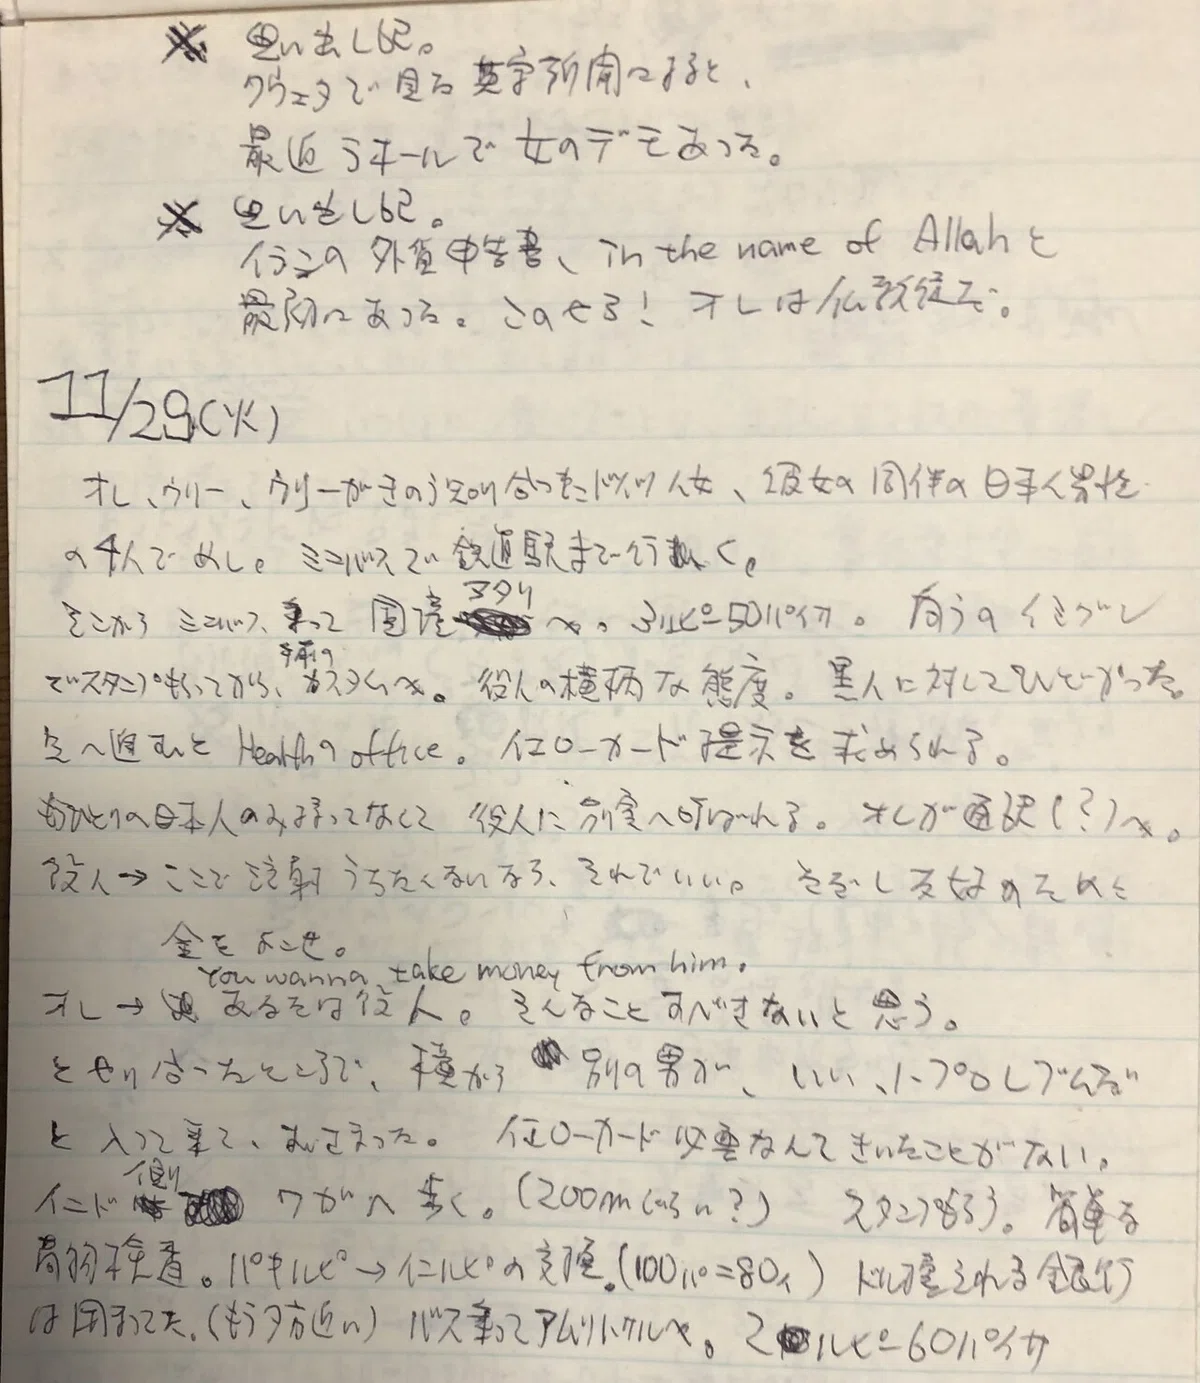 ※ 思い出し記。
クウェタで見た英字新聞によると、
最近ラホールで女のデモあった。
※ 思い出し記。
イランの外貨申告書、in the name of Allahと
最初にあった。このせろ! オレは仏教徒だ。
11/29(火)
オレ、ウリー、ウリーがきのう知り合ったドイツ人女、彼女の同伴の日本人男性
の4人でめし。ミニバスで鉄道駅まで行く。
そこからミニバス乗って国境アタリへ。3ルピー50パイサ。向うのイミグレ
でスタンプもらってから、手前のカスタムへ。役人の横柄な態度。黒人に対してひどかった。
先へ進むとHealthのoffice。イエローカード提示を求められる。
もひとりの日本人のみ持ってなくて役人に別室へ呼ばれる。オレが通訳(?)へ。
役人→ここで注射うちたくないなら、それでいい。ただし友好のために
金をよこせ。
You wanna take money from him.
オレ→あなたは役人。そんなことすべきでないと思う。
とやり合ったところで、横から別の男が、いい、ノープロレブムだ
と入って来て、おさまった。イエローカード必要なんてきいたことがない。
インド側ワガへ歩く。(200mぐらい?) スタンプもらう。簡単な
荷物検査。パキルピ→インルピの交換。(100パ=80イ) ドル換えれる銀行
は閉まってた。(もう夕方近い) バス乗ってアムリトサルへ。2ルピー60パイサ